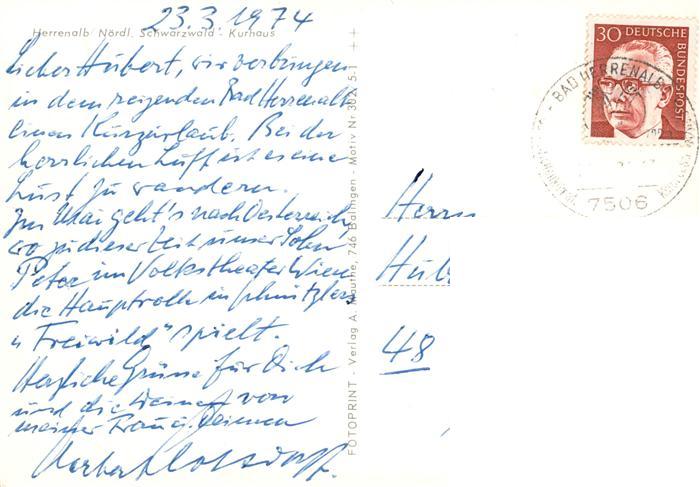 23.3.1974
Herrenalb/Nördl. Schwarzwald - Kurhaus
Lieber Hubert, wir verbringen
in dem reizenden Bad Herrenalb
einen Kurzurlaub. Bei der
herrlichen Luft ist es eine
Lust zu wandern.
Im Mai geht's nach Oesterreich,
wo zu dieser Zeit unser Sohn
Peter im Volkstheater Wien
die Hauptrolle in Schnitzlers
"Freiwild" spielt.
Herzliche Grüsse für Dich
und die Deinen von
meiner Frau u. Deinem
Herbert
FOTOPRINT - Verlag A. Mauthe, 746 Balingen - Motiv Nr. 302/5-1
30 DEUTSCHE
BUNDESPOST
BAD HERRENALB
7506
Herrn
Hub
48